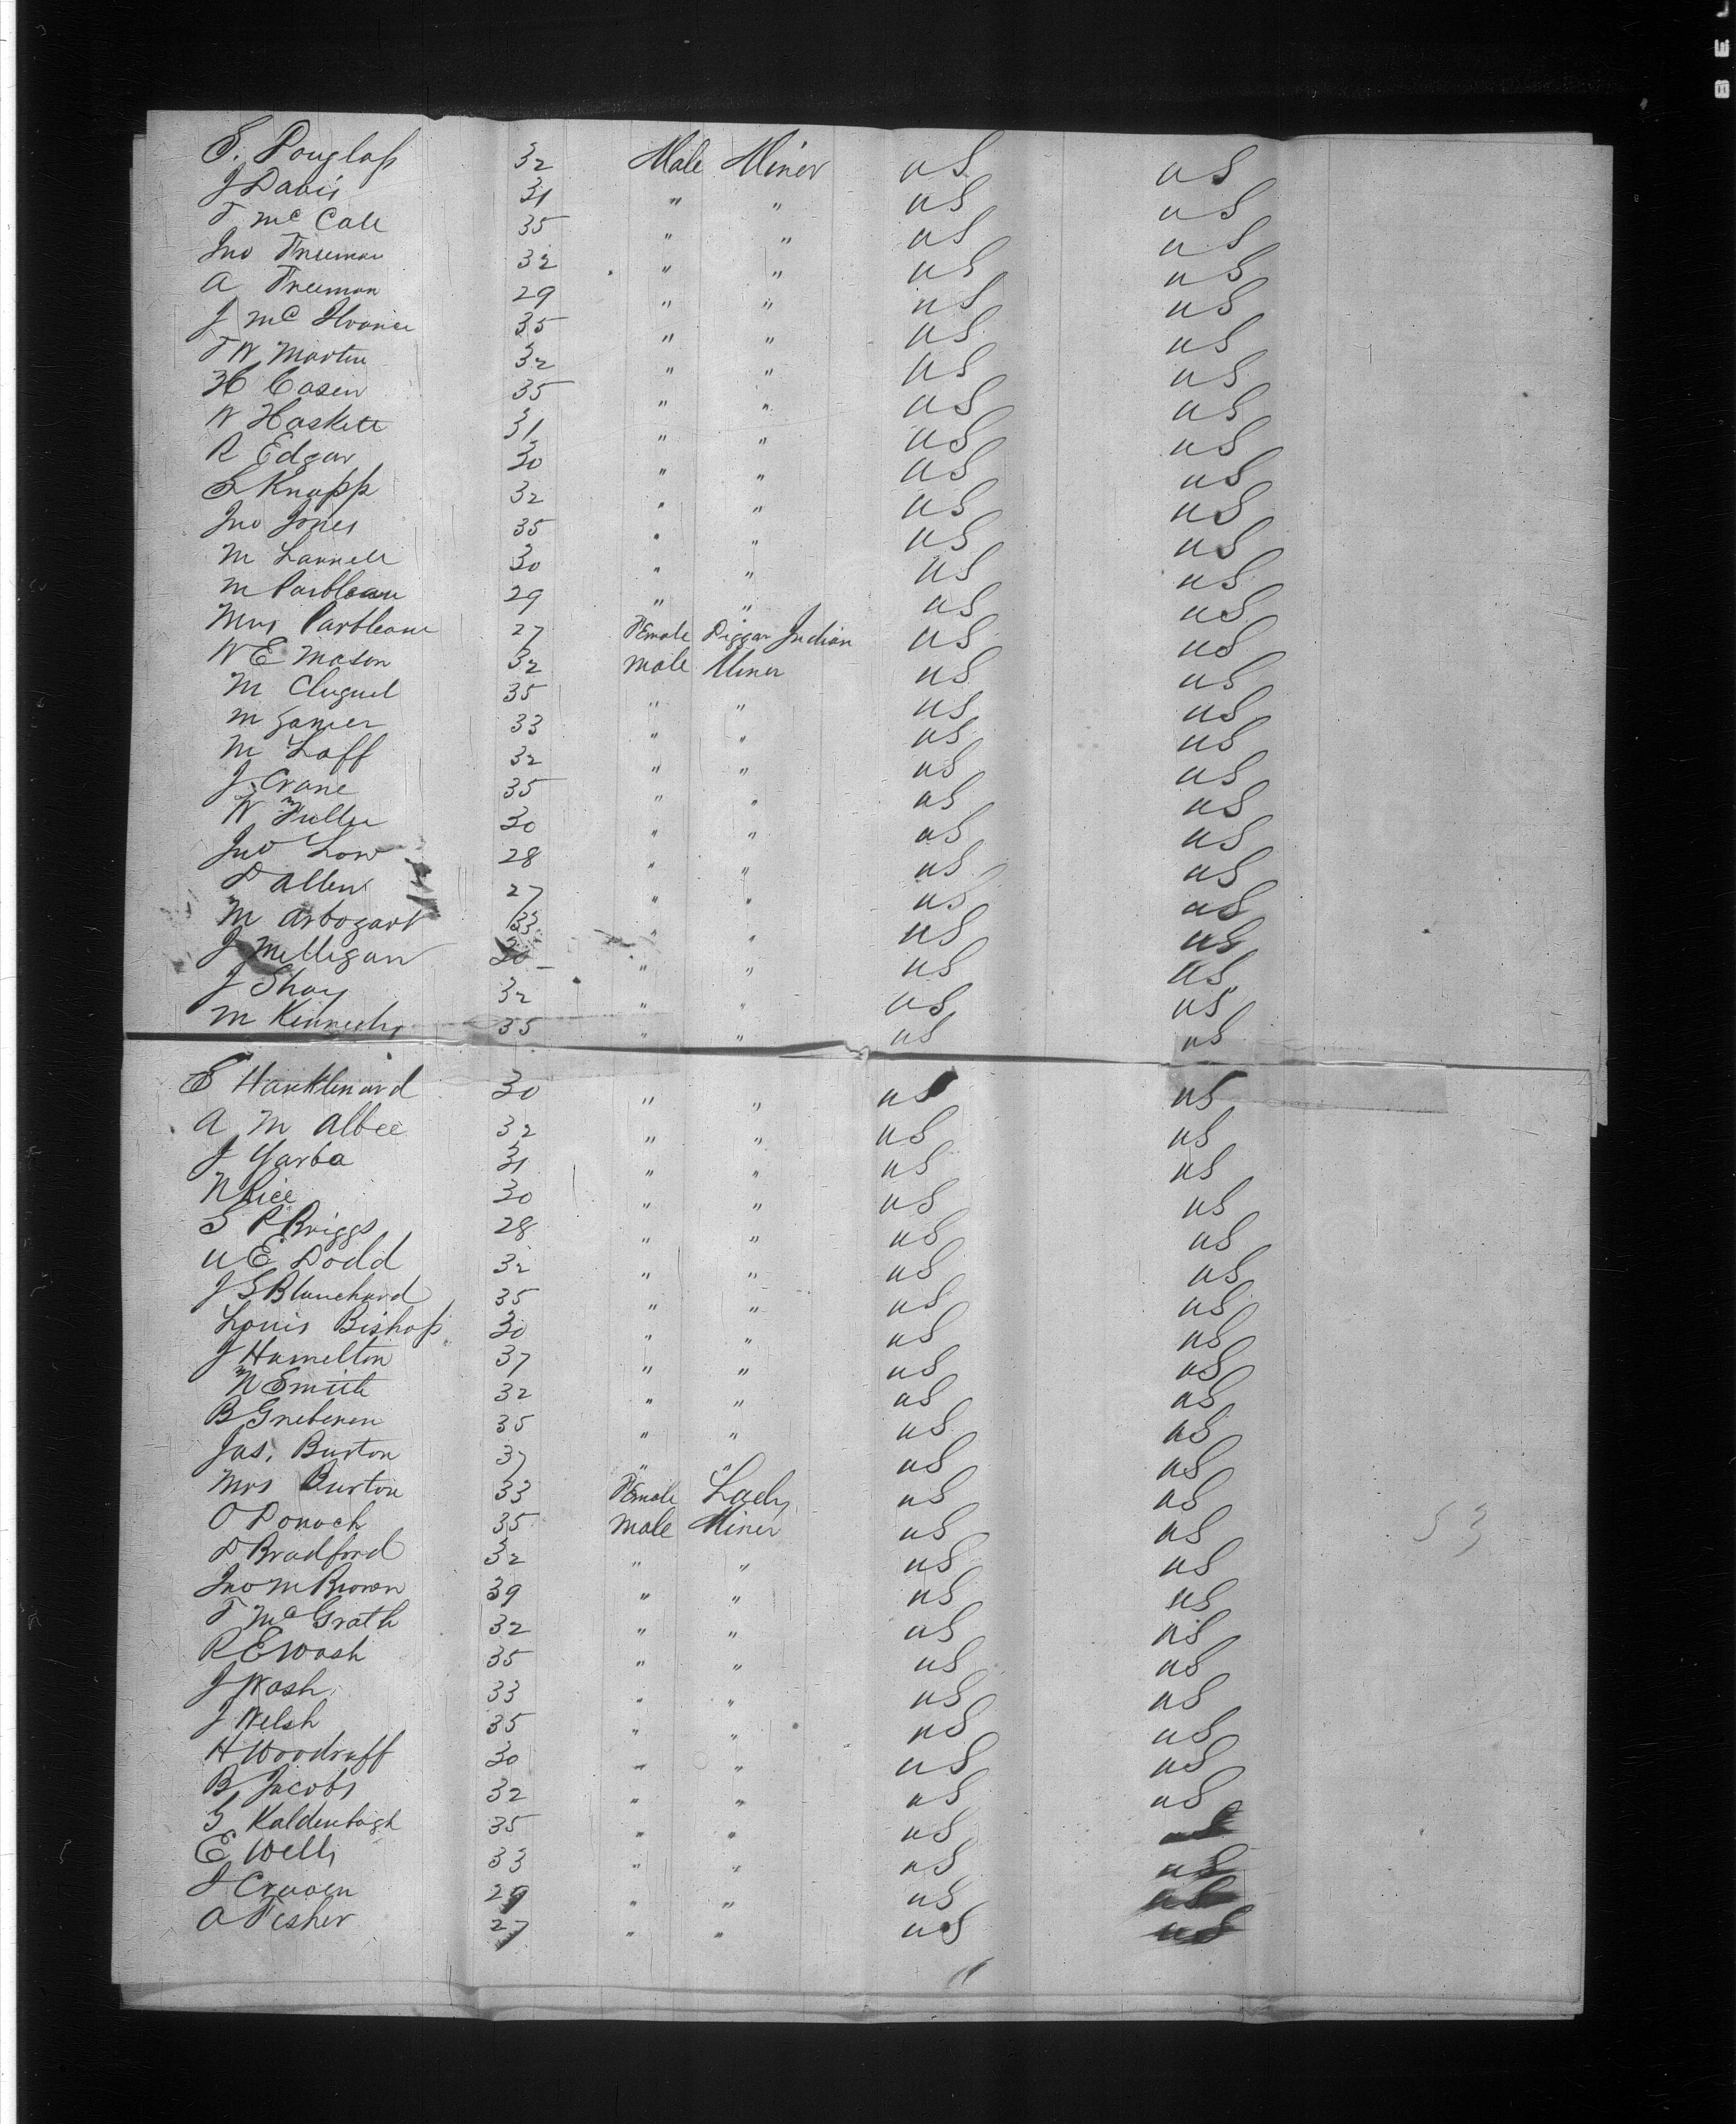 S. Douglass 32 Male Miner US US
J Davis 31 " " US US
T McCall 35 " " US US
Jno Freeman 32 " " US US
A Freeman 29 " " US US
J Mc 35 " " US US
T W Martin 32 " " US US
H Casen 35 " " US US
W Haskell 31 " " US US
R Edgar 30 " " US US
S Knapp 32 " " US US
Jno Jones 35 " " US US
M Lannell 30 " " US US
M Partbleau 29 " " US US
Mrs Partbleau 27 Female Digger Indian US US
W E Mason 32 Male Miner US US
M 35 " " US US
M 33 " " US US
M Laff 32 " " US US
J Crane 35 " " US US
W Fuller 30 " " US US
Jno Low 28 " " US US
D Allen 27 " " US US
M Arbogart 33 " " US US
J Milligan 30 " " US US
J Shay 32 " " US US
M Kennedy 35 " " US US
E 30 " " US US
A M Albee 32 " " US US
J Yarba 31 " " US US
N Rice 30 " " US US
S P Briggs 28 " " US US
U E Dodd 32 " " US US
J S Blanchard 35 " " US US
Louis Bishop 30 " " US US
J Hamelton 37 " " US US
W Smith 32 " " US US
B 35 " " US US
Jas. Burton 37 " " US US
Mrs Burton 33 Female Lady US US
O Donoch 35 Male Miner US US
D Bradford 32 " " US US
Jno M Brown 39 " " US US
T McGrath 32 " " US US
R E Wash 35 " " US US
J Wash 33 " " US US
J Welsh 35 " " US US
H Woodruff 30 " " US US
B Jacobs 32 " " US US
G Kaldenbagh 35 " " US US
E Wells 33 " " US US
J Craven 29 " " US US
A Fisher 27 " " US US
53